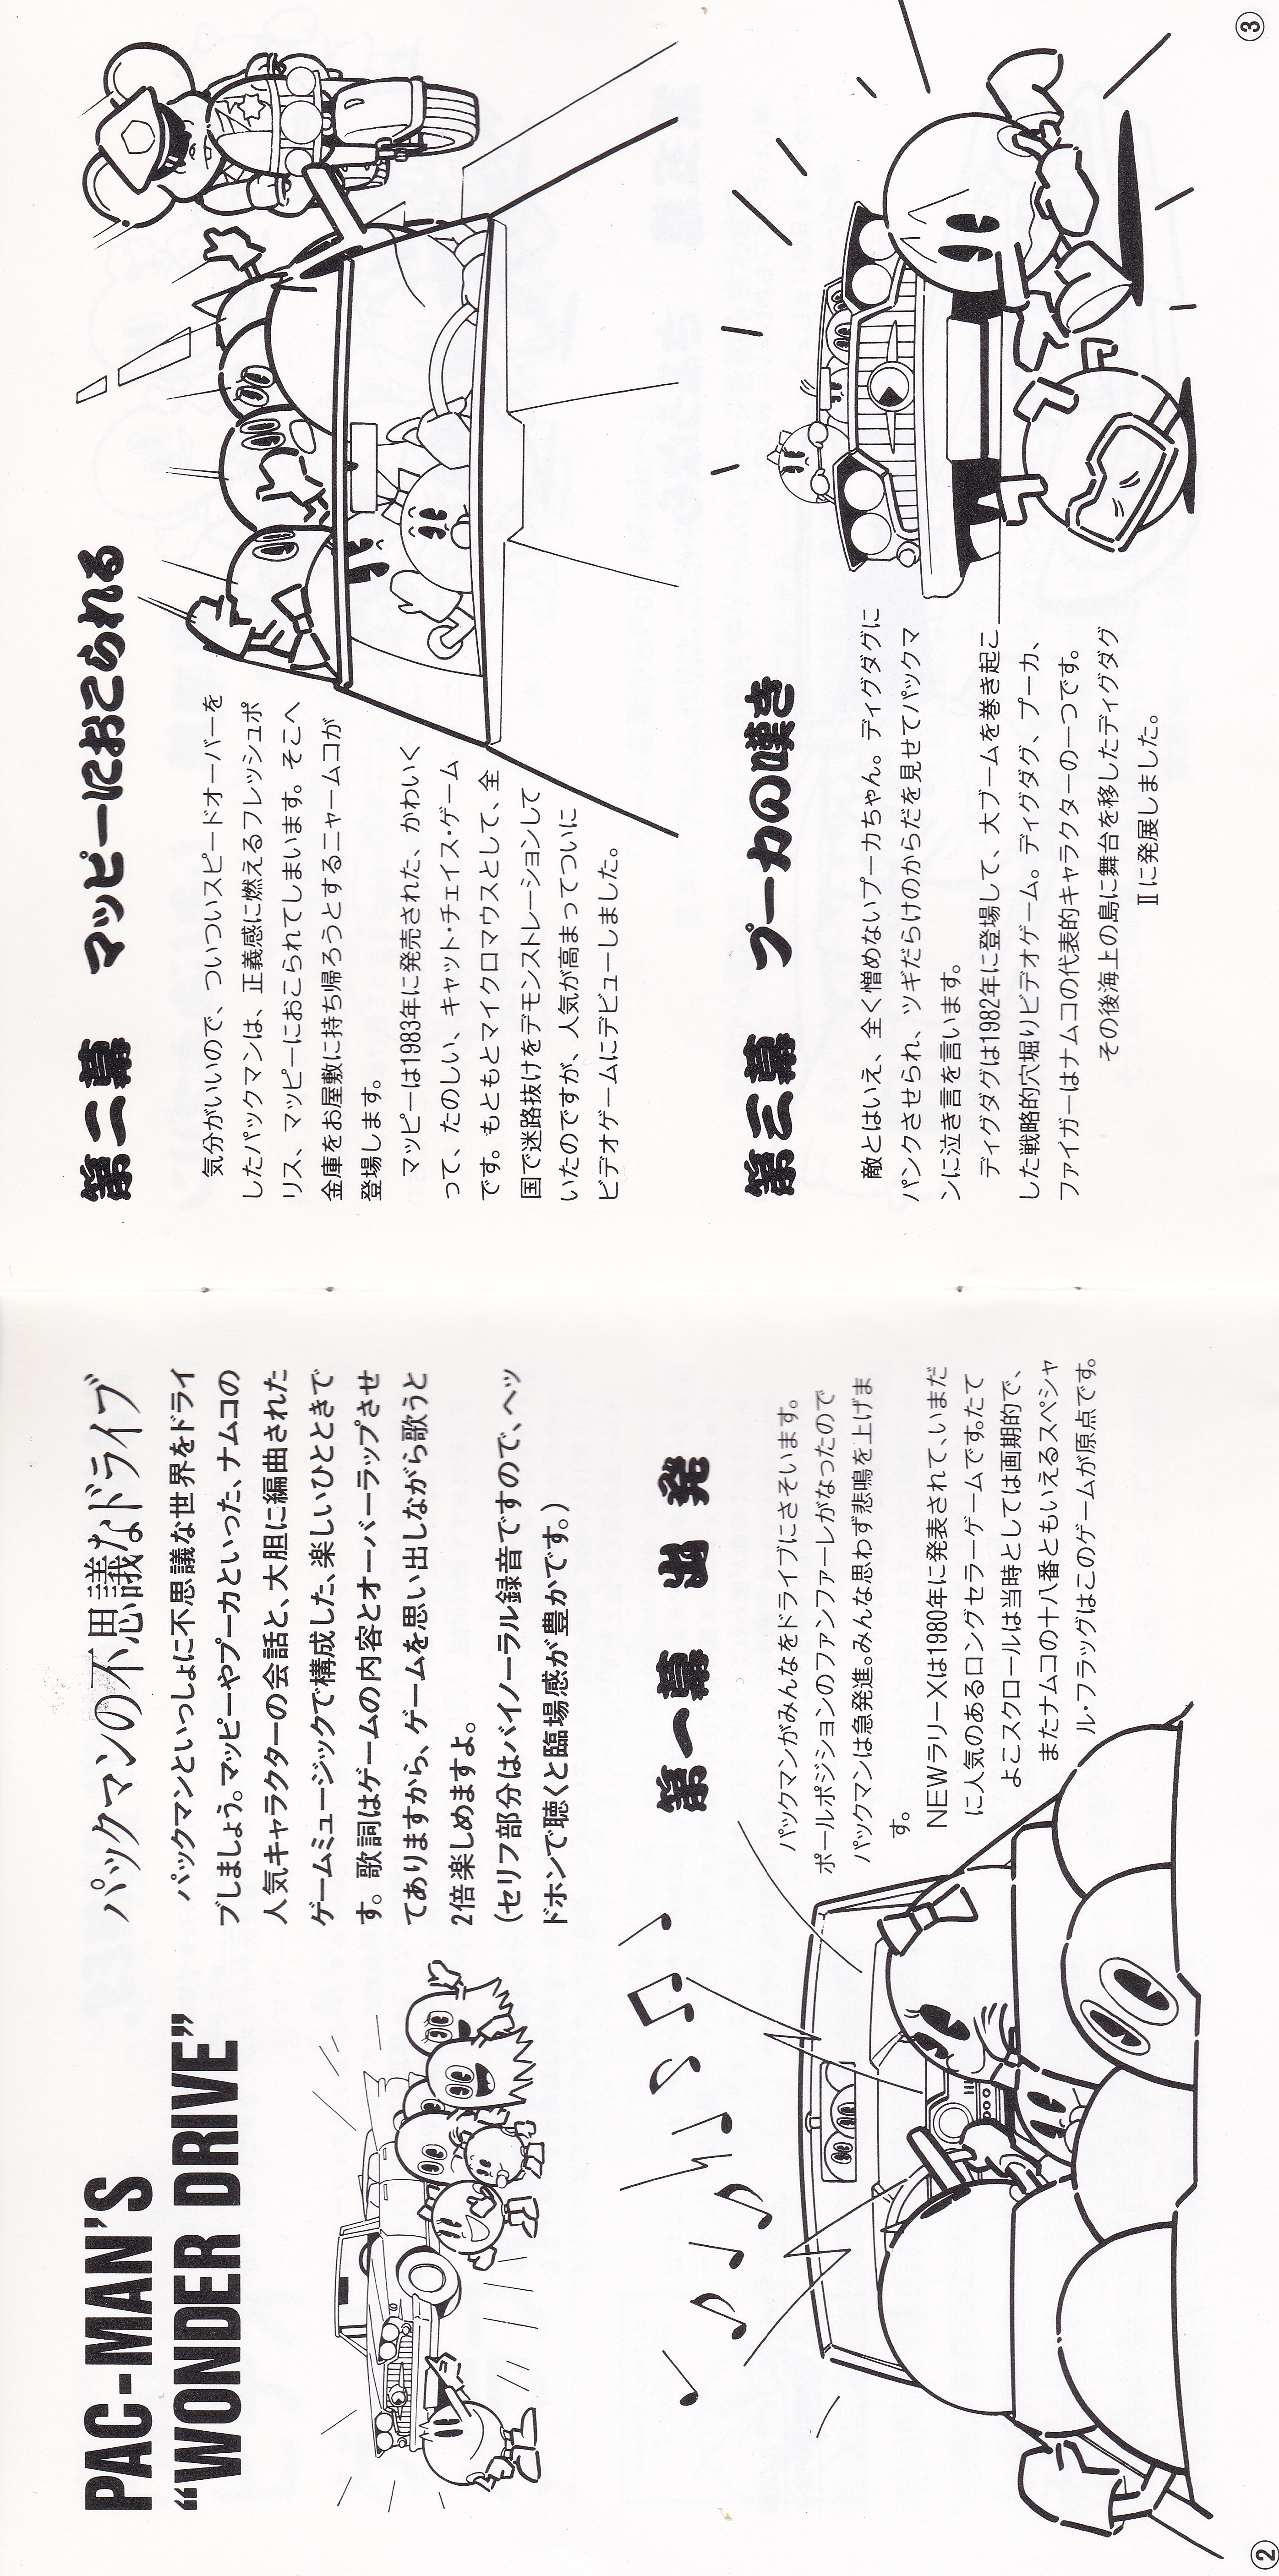 PAC-MAN'S
“WONDER DRIVE”
パックマンの不思議なドライブ
パックマンといっしょに不思議な世界をドライ
ブしましょう。マッピーやプーカといった、ナムコの
人気キャラクターの会話と、大胆に編曲された
ゲームミュージックで構成した、楽しいひとときで
す。歌詞はゲームの内容とオーバーラップさせ
てありますから、ゲームを思い出しながら歌うと
2倍楽しめますよ。
(セリフ部分はバイノーラル録音ですので、ヘッ
ドホンで聴くと臨場感が豊かです。)
第一幕 出発
パックマンがみんなをドライブにさそいます。
ポールポジションのファンファーレがなったので
パックマンは急発進。みんな思わず悲鳴を上げま
す。
NEWラリーXは1980年に発表されて、いまだ
に人気のあるロングセラーゲームです。たて
よこスクロールは当時としては画期的で、
またナムコの十八番ともいえるスペシャ
ル・フラッグはこのゲームが原点です。
②
第二幕 マッピーにおこられる
気分がいいので、ついついスピードオーバーを
したパックマンは、正義感に燃えるフレッシュポ
リス、マッピーにおこられてしまいます。そこへ
金庫をお屋敷に持ち帰ろうとするニャームコが
登場します。
マッピーは1983年に発売された、かわいく
って、たのしい、キャット・チェイス・ゲーム
です。もともとマイクロマウスとして、全
国で迷路抜けをデモンストレーションして
いたのですが、人気が高まってついに
ビデオゲームにデビューしました。
第三幕 プーカの嘆き
敵とはいえ、全く憎めないプーカちゃん。ディグダグに
パンクさせられ、ツギだらけのからだを見せてパックマ
ンに泣き言を言います。
ディグダグは1982年に登場して、大ブームを巻き起こ
した戦略的穴堀りビデオゲーム。ディグダグ、プーカ、
ファイガーはナムコの代表的キャラクターの一つです。
その後海上の島に舞台を移したディグダグ
Ⅱに発展しました。
③